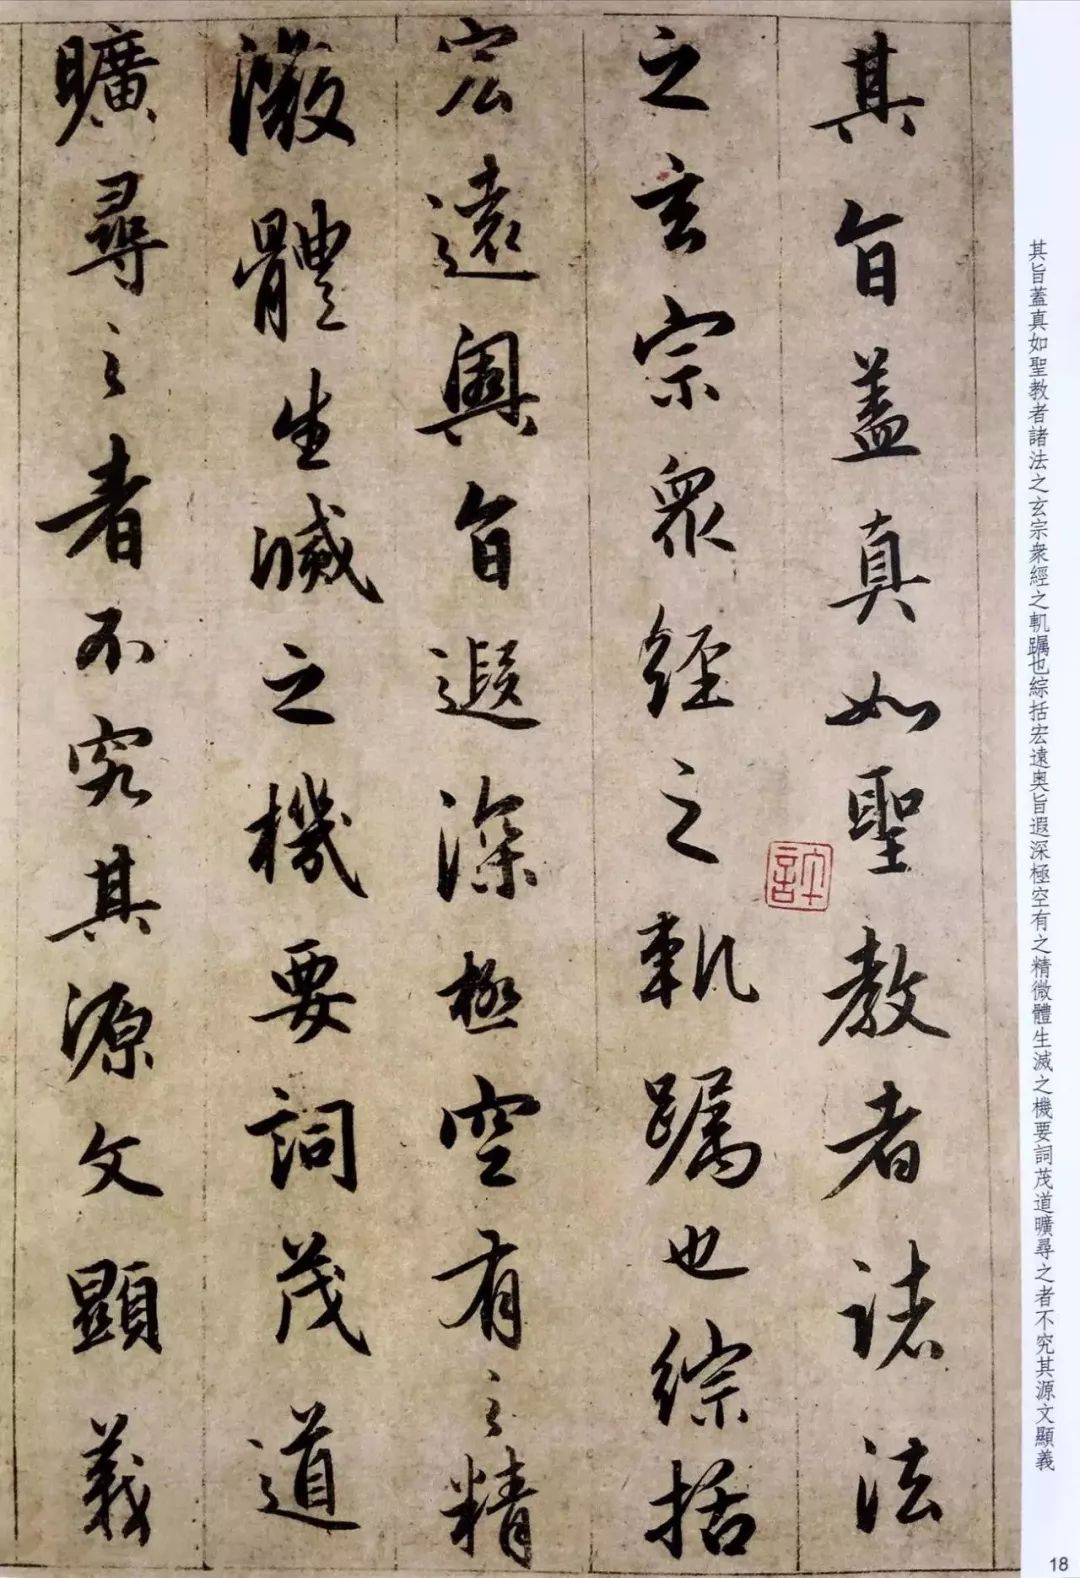 其旨蓋真如聖教者諸法
之玄宗眾經之軌躅也綜括
宏遠奧旨遐深極空有之精
微體生滅之機要詞茂道
曠尋之者不究其源文顯義
其旨蓋真如聖教者諸法之玄宗衆經之軌躅也綜括宏遠奥旨遐深極空有之精微體生滅之機要詞茂道曠尋之者不究其源文顯義
18